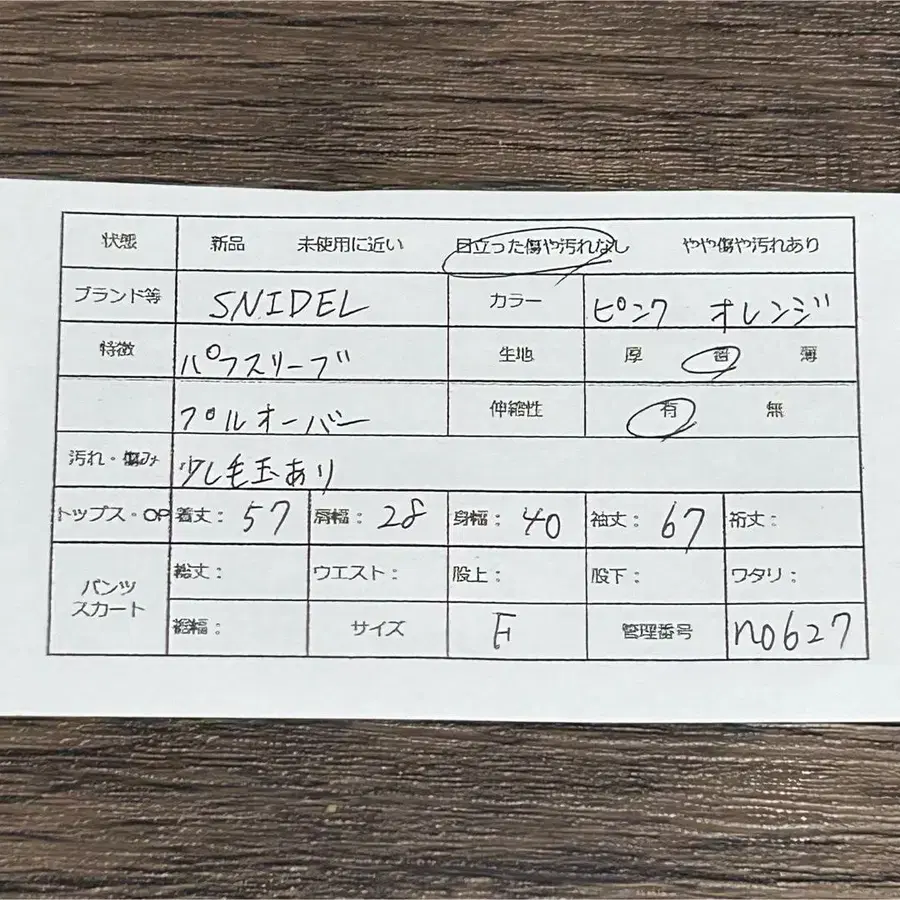 状態 新品 未使用に近い 目立った傷や汚れなし やや傷や汚れあり
ブランド等 SNIDEL カラー ピンク オレンジ
特徴 パフスリーブ 生地 厚 普 薄
プルオーバー 伸縮性 有 無
汚れ・傷み 少し毛玉あり
トップス・OP 着丈: 57 肩幅: 28 身幅: 40 袖丈: 67 裄丈:
パンツ スカート 総丈: ウエスト: 股上: 股下: ワタリ:
裾幅: サイズ F 管理番号 no627